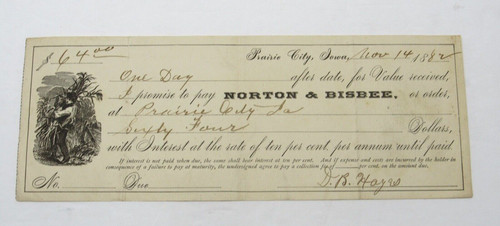 $64.00 Prairie City, Iowa, Nov 14 1882
One Day after date, for Value received,
I promise to pay NORTON & BISBEE, or order,
at Prairie City Ia
Sixty Four Dollars,
with Interest at the rate of ten per cent. per annum until paid.
If interest is not paid when due, the same shall bear interest at ten per cent. And if expense and costs are incurred by the holder in
consequence of a failure to pay at maturity, the undersigned agree to pay a collection fee of per cent. on the amount due.
No. Due D. B. Hayes